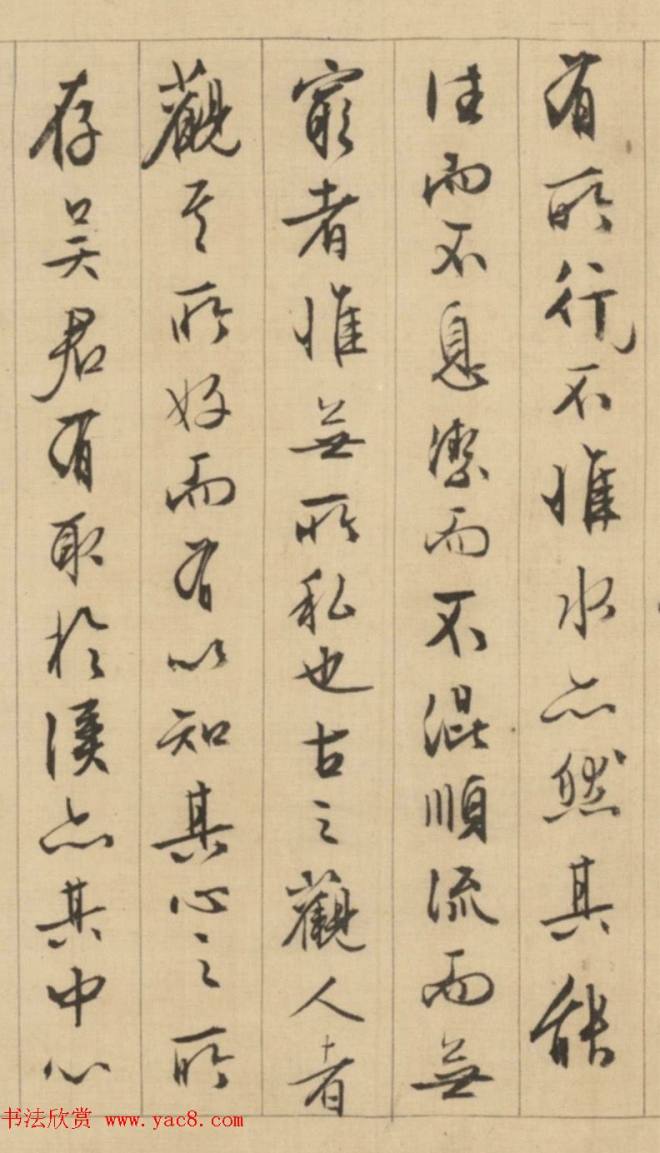 有所行不惟水亦然其能
往而不息潔而不混順流而無
窮者惟無所私也古之觀人者
觀其所好而有以知其心之所
存吴君有取於溪亦其中心
书法欣赏 www.yac8.com